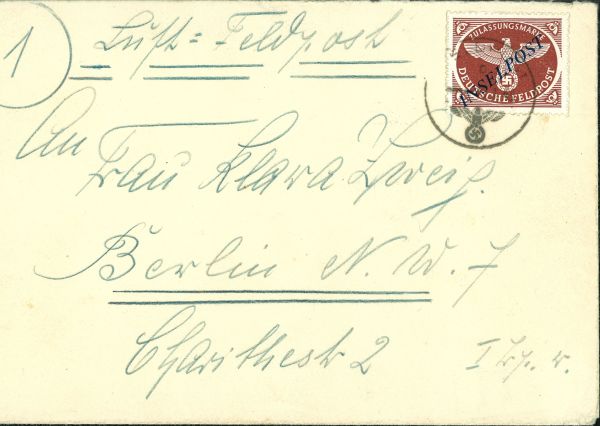 1
Luft-Feldpost
ZULASSUNGSMARKE
INSELPOST
DEUTSCHE FELDPOST
An
Frau Klara Zweig.
Berlin N. W. 7
Charithestr 2 I